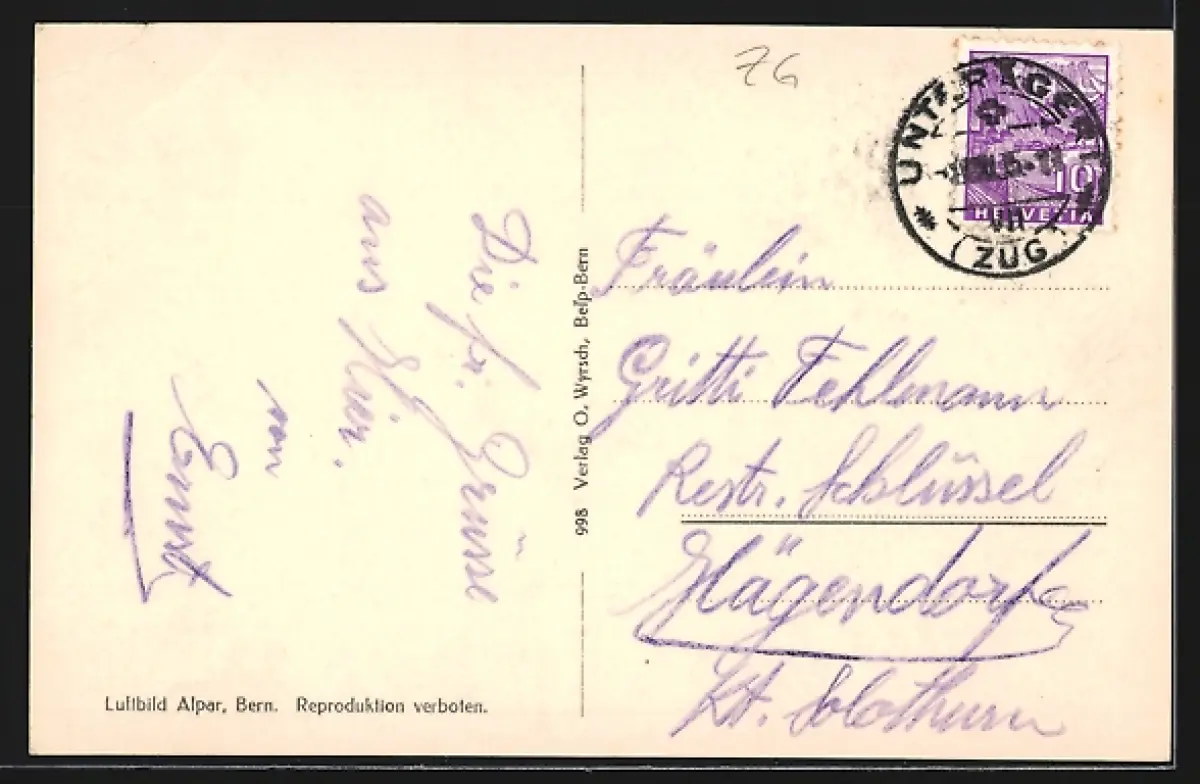 ZG
UNTERÄGERI
VII
(ZUG)
10
HELVETIA
Die fr. Grüsse
aus Hier.
von
Ernst
998 Verlag O. Wyrsch, Belp-Bern
Fräulein
Gritti Fehlmann
Restr. Schlüssel
Hägendorf
Kt. Solothurn
Luftbild Alpar, Bern. Reproduktion verboten.